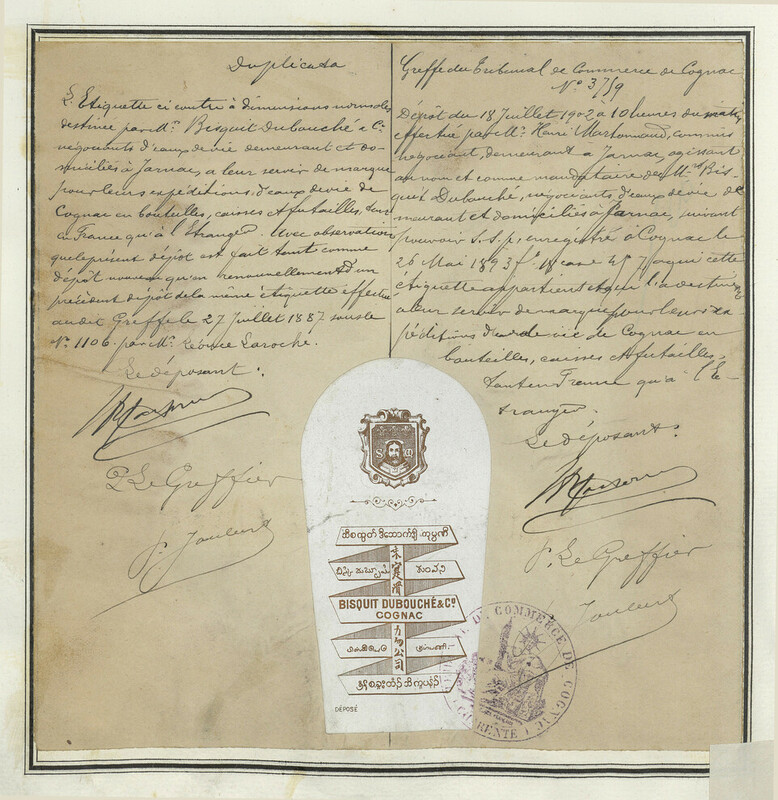 Duplicata
L'Etiquette ci contre à dimensions normales
destinée par Mrs Bisquit Dubouché & Cie
négociants d'eaux de vie demeurant et do-
miciliés à Jarnac, a leur servir de marque
pour leurs expéditions d'eaux de vie de
Cognac en bouteilles, caisses et futailles, tant
en France qu'à l'Etranger. Avec observation
que le présent dépôt est fait tant comme
dépôt nouveau qu'en renouvellement d'un
précédent dépôt de la même étiquette effectué
au dit Greffe le 27 Juillet 1887 sous le
No 1106 par Mr Léonce Laroche.
Le déposant:
P. Le Greffier
Greffe du Tribunal de Commerce de Cognac
No 3759
Dépôt du 18 Juillet 1902 à 10 heures du matin
effectué par Mr Henri, commis
négociant, demeurant à Jarnac, agissant
au nom et comme mandataire de Mrs Bis-
quit Dubouché, négociants d'eaux de vie de-
meurant et domiciliés à Jarnac, suivant
pouvoir s.s.p. enregistré à Cognac le
26 Mai 1893 fo 18 case 4 qui cette
étiquette appartient et qui l'a destinée
à leur servir de marque pour leurs ex-
péditions d'eau de vie de Cognac en
bouteilles, caisses et futailles,
tant en France qu'à l'E-
tranger.
Le déposant:
P. Le Greffier
BISQUIT DUBOUCHÉ & Co
COGNAC
公司
DÉPOSÉ
DE COMMERCE DE COGNAC
CHARENTE